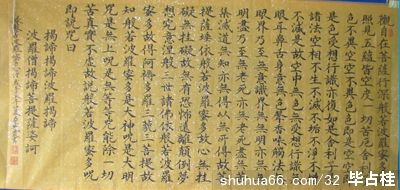 觀自在菩薩行深般若波羅蜜多時
照見五蘊皆空度一切苦厄舍利子
色不異空空不異色色即是空空即
是色受想行識亦復如是舍利子是
諸法空相不生不滅不垢不淨不增
不減是故空中無色無受想行識無
眼耳鼻舌身意無色聲香味觸法無
眼界乃至無意識界無無明亦無無
明盡乃至無老死亦無老死盡無苦
集滅道無智亦無得以無所得故菩
提薩埵依般若波羅蜜多故心無罣
礙無罣礙故無有恐怖遠離顛倒夢
想究竟涅槃三世諸佛依般若波羅
蜜多故得阿耨多羅三藐三菩提故
知般若波羅蜜多是大神咒是大明
咒是無上咒是無等等咒能除一切
苦真實不虛故說般若波羅蜜多咒
即說咒曰
揭諦揭諦波羅揭諦
波羅僧揭諦菩提薩婆訶
shuhua66.com/32 毕占桂